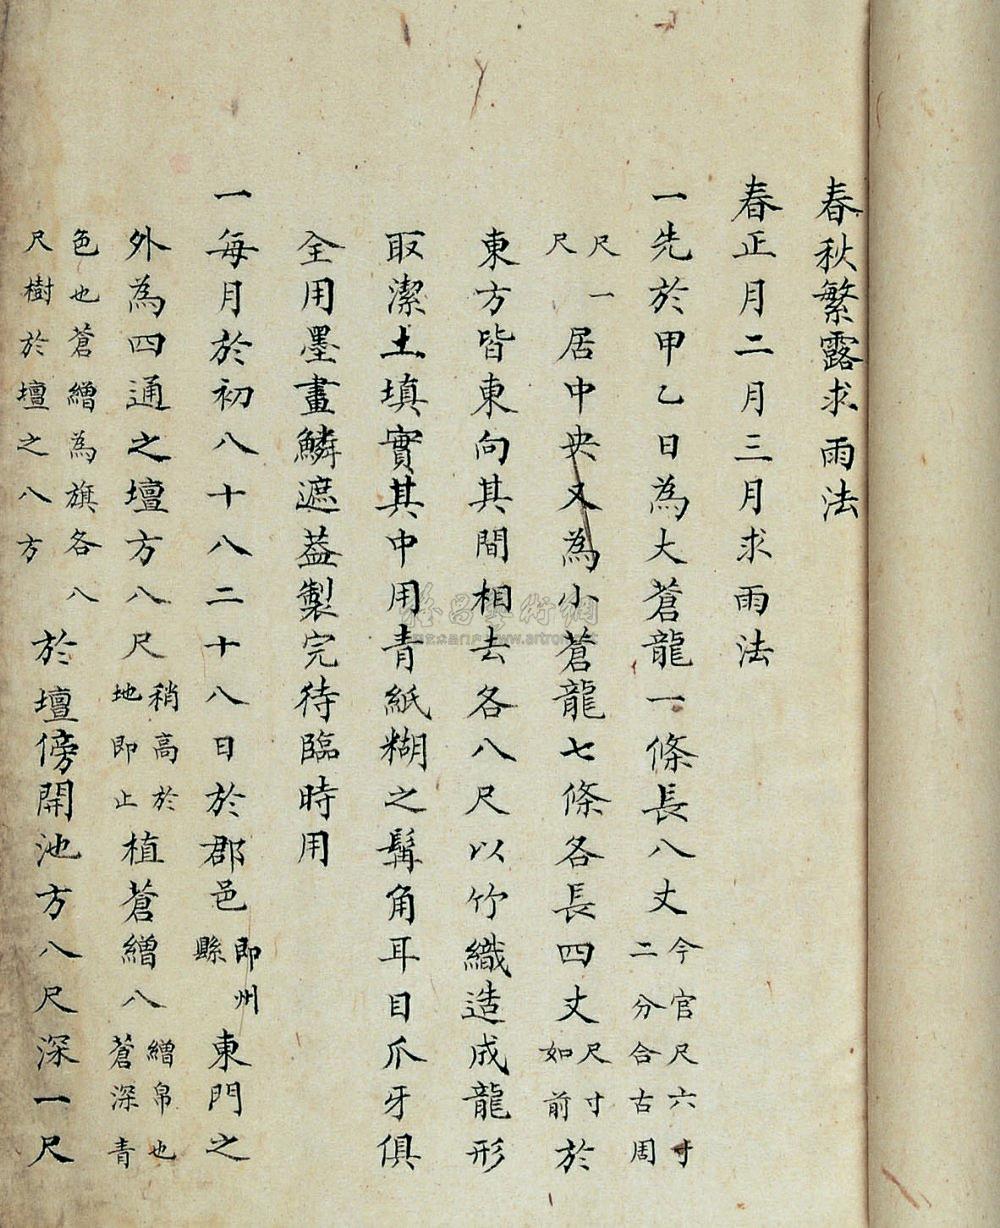 春秋繁露求雨法
春正月二月三月求雨法
一先於甲乙日為大蒼龍一條長八丈今官尺六寸二分合古周
尺一尺居中央又為小蒼龍七條各長四丈尺寸如前於
東方皆東向其間相去各八尺以竹織造成龍形
取潔土填實其中用青紙糊之髯角耳目爪牙俱
全用墨畫鱗遮葢製完待臨時用
一每月於初八十八二十八日於郡邑即州縣東門之
外為四通之壇方八尺稍高於地即止植蒼繒八繒帛也蒼深青
色也蒼繒為旗各八尺樹於壇之八方於壇傍開池方八尺深一尺